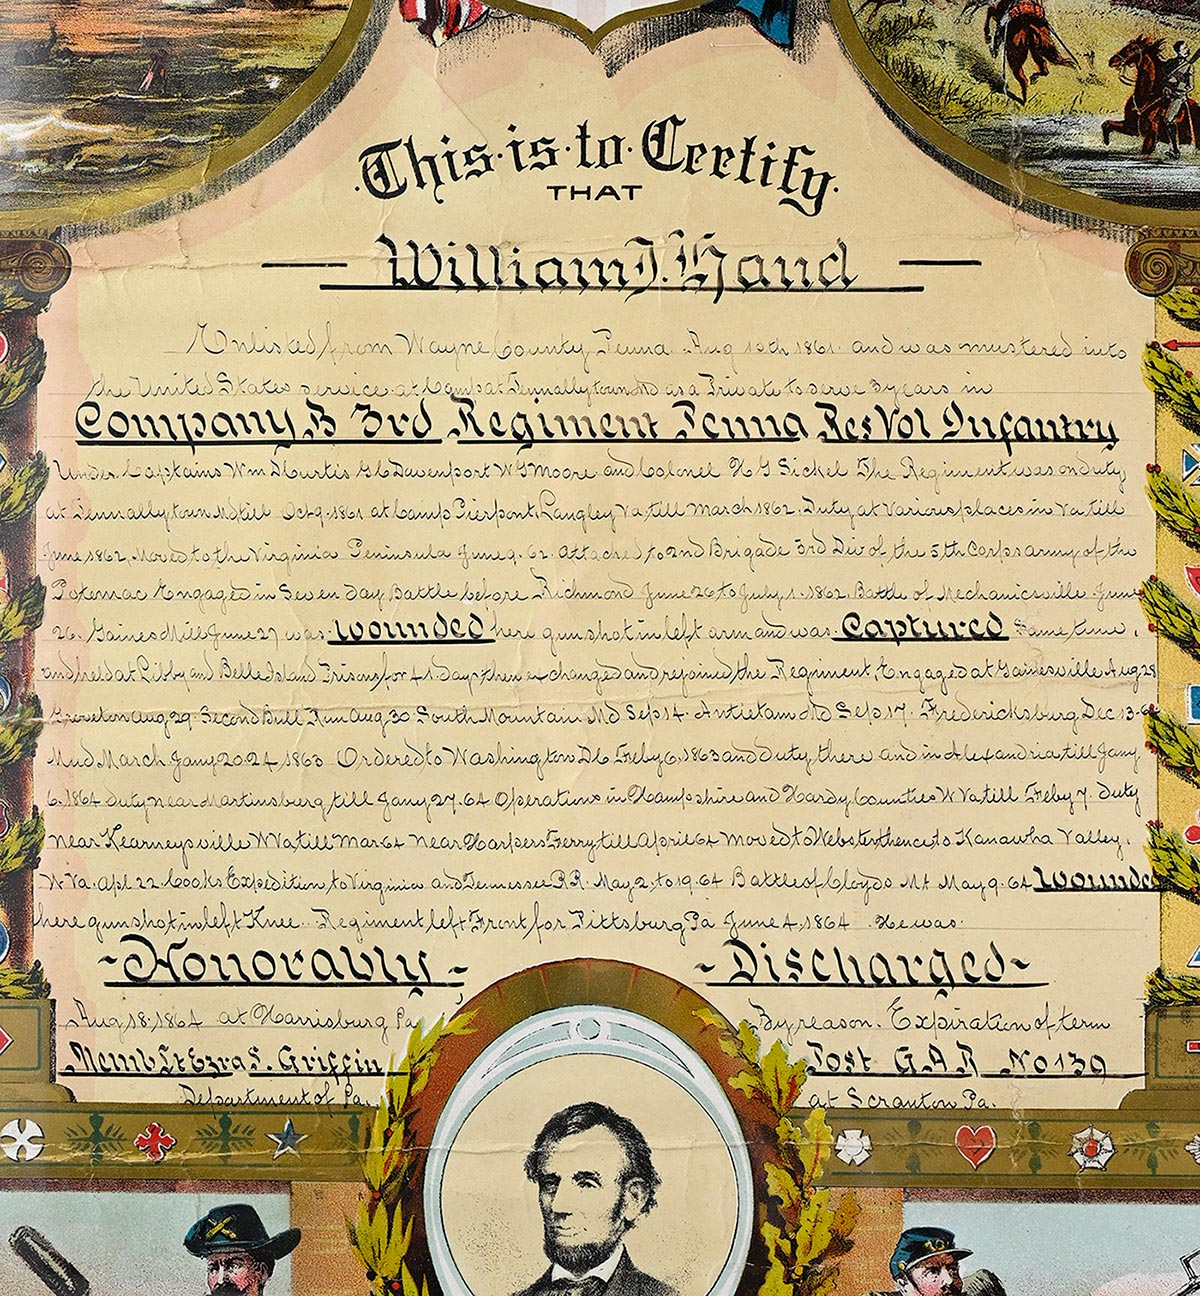 This·is·to·Certify
THAT
William J. Hand
Enlisted from Wayne County Penna. Aug 12th 1861. and was mustered into
the United States service at Camp at Tennallytown Md as a Private to serve 3 years in
Company B 3rd Regiment Penna Res Vol Infantry
Under Captains Wm D Curtis G C Davenport W G Moore and Colonel H G Sickel The Regiment was on duty
at Tennallytown Md till Oct 9. 1861 at Camp Pierpont, Langley Va. till March 1862. Duty at Various places in Va till
June 1862, Moved to the Virginia Peninsula June 9. 62. Attached to 2nd Brigade 3rd Div of the 5th Corps army of the
Potomac Engaged in Seven day Battle before Richmond June 26 to July 1. 1862. Battle of Mechanicsville June
26. Gaines Mill June 27 was wounded here gunshot in left arm and was Captured same time.
and held at Libby and Belle Island Prisons for 41 days then exchanged and rejoined the Regiment, Engaged at Gainesville Aug 28
Groveton Aug 29. Second Bull Run Aug 30 South Mountain Md Sep 14. Antietam Md Sep 17. Fredericksburg Dec 13-62
Mud March Jany 20.24, 1863 Ordered to Washington D C Feby 6, 1863 and duty there and in Alexandria till Jany
6. 1864 duty near Martinsburg, till Jany 27. 64 Operations in Hampshire and Hardy Counties W Va till Feby 7. Duty
near Kearneysville W Va till Mar 64 near Harpers Ferry till April 64 Moved to Webster thence to Kanawha Valley,
W Va. Apl 22. Cooks Expedition to Virginia and Tennessee R R. May 2, to 19. 64 Battle of Cloyds Mt May 9. 64 Wounded
here gunshot in left Knee. Regiment left Front for Pittsburg Pa June 4, 1864 He was.
-Honorably- -Discharged-
Aug 18. 1864 at Harrisburg Pa By reason. Expiration of term
Memb Lt Ezra S. Griffin Post G A R No 139
Department of Pa. at Scranton Pa.